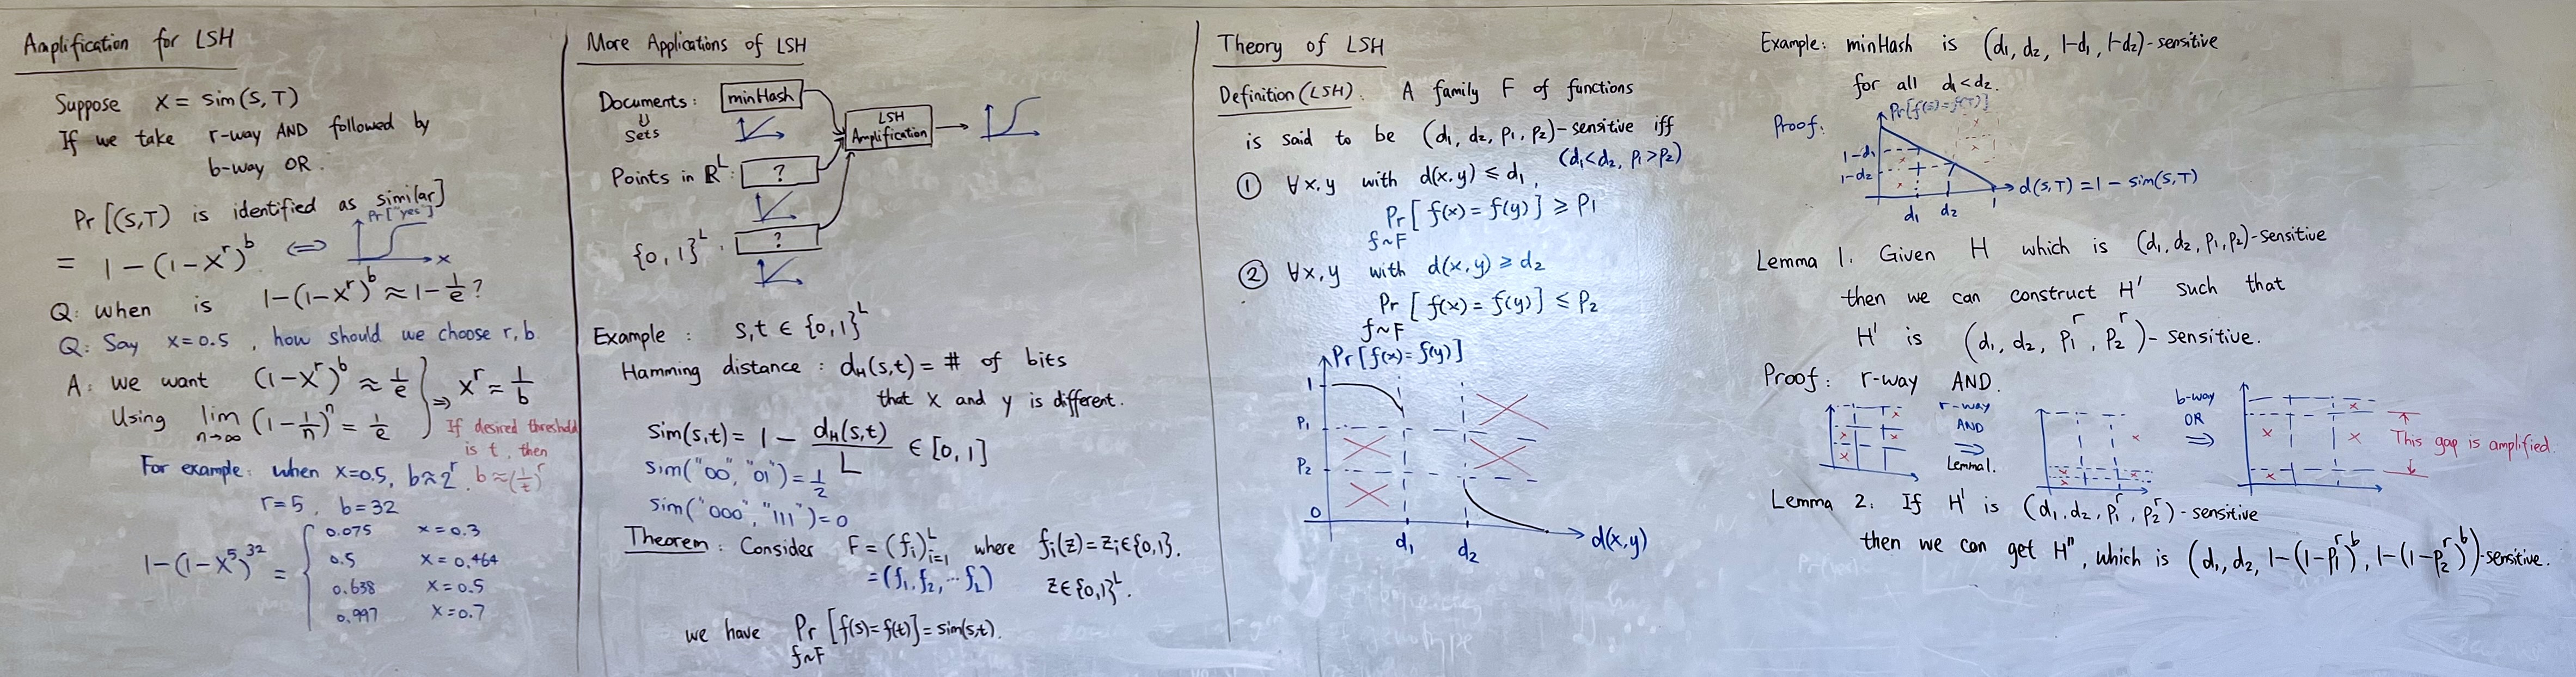 Amplification for LSH
Suppose x = sim(S,T)
If we take r-way AND followed by
b-way OR.
Pr[(S,T) is identified as similar]
= 1-(1-x^r)^b. ⇔
Pr["yes"]
x
Q: when is 1-(1-x^r)^b ≈ 1-1/e?
Q: Say x=0.5, how should we choose r,b
A: we want (1-x^r)^b ≈ 1/e
Using lim n→∞ (1-1/n)^n = 1/e
⇒ x^r ≈ 1/b
If desired threshold
is t, then
b≈(1/t)^r
For example: when x=0.5, b≈2^r.
r=5, b=32
1-(1-x^5)^32 =
0.075 x=0.3
0.5 x=0.464
0.638 x=0.5
0.997 x=0.7
More Applications of LSH
Documents: minHash
⇓
Sets
LSH
Amplification
Points in R^L: ?
{0,1}^L: ?
Example: s,t ∈ {0,1}^L
Hamming distance: d_H(s,t) = # of bits
that x and y is different.
Sim(s,t) = 1 - d_H(s,t)/L ∈ [0,1]
sim("00","01")=1/2
sim("000","111")=0
Theorem: Consider F=(f_i)_{i=1}^L where f_i(z)=z_i∈{0,1}.
=(f_1,f_2,...f_L) z∈{0,1}^L.
we have Pr [f(s)=f(t)]=sim(s,t).
f~F
Theory of LSH
Definition(LSH). A family F of functions
is said to be (d_1, d_2, p_1, p_2)-sensitive iff
(d_1<d_2, p_1>p_2)
① ∀x,y with d(x,y) ≤ d_1,
Pr [f(x)=f(y)] ≥ p_1
f~F
② ∀x,y with d(x,y) ≥ d_2
Pr [f(x)=f(y)] ≤ p_2
f~F
Pr[f(x)=f(y)]
1
p_1
p_2
0
d_1 d_2 d(x,y)
Example: minHash is (d_1, d_2, 1-d_1, 1-d_2)-sensitive
for all d_1<d_2.
Proof:
Pr[f(S)=f(T)]
1-d_1
1-d_2
d(S,T)=1-sim(S,T)
d_1 d_2 1
Lemma 1. Given H which is (d_1,d_2,p_1,p_2)-sensitive
then we can construct H' such that
H' is (d_1, d_2, p_1^r, p_2^r)-sensitive.
Proof: r-way AND.
r-way
AND
⇒
Lemma1.
b-way
OR
⇒
This gap is amplified.
Lemma 2. If H' is (d_1,d_2,p_1^r,p_2^r)-sensitive
then we can get H'', which is (d_1, d_2, 1-(1-p_1^r)^b, 1-(1-p_2^r)^b)-sensitive.